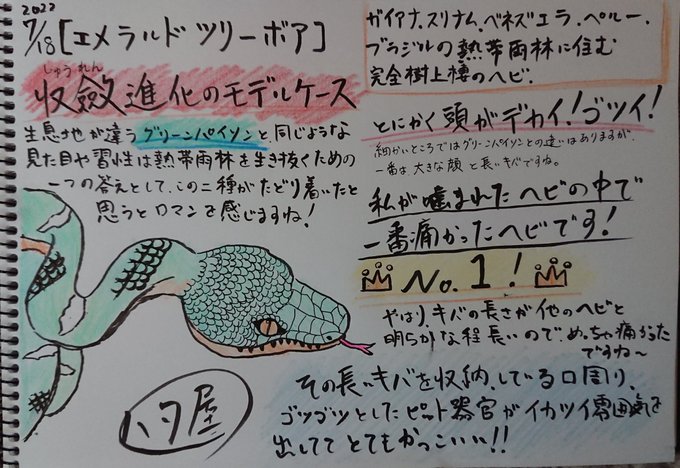 2022
7/18 [エメラルド ツリー ボア]
しゅうれん
収斂進化のモデルケース
生息地が違うグリーンパイソンと同じような
見た目や習性は熱帯雨林を生き抜くための
一つの答えとして、この二種がたどり着いたと
思うとロマンを感じますね!
ガイアナ、スリナム、ベネズエラ、ペルー、
ブラジルの熱帯雨林に住む
完全樹上棲のヘビ。
とにかく頭がデカイ!ゴツイ!
細かいところではグリーンパイソンとの違いはありますが、
一番は大きな顔と長いキバですね。
私が噛まれたヘビの中で
一番痛かったヘビです!
No.1!
やはり、キバの長さが他のヘビと
明らかな程長いので、めっちゃ痛かった
ですね〜
その長いキバを収納している口周り、
ゴツゴツとしたピット器官がイカツイ雰囲気を
出してて とてもかっこいい!!
ハタ屋